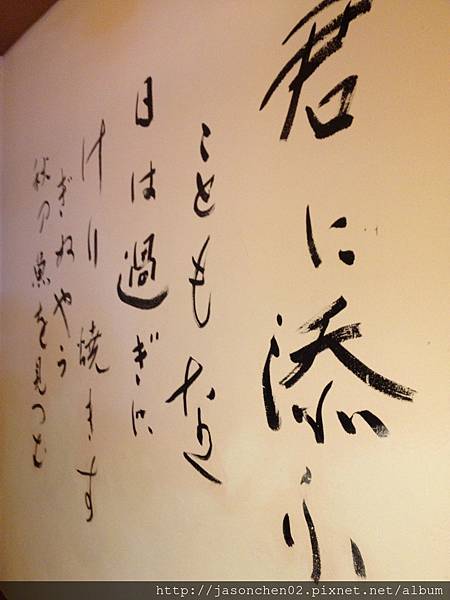 君に添ふ
こともなく
日は過ぎに
けり焼きす
ぎぬやう
秋の魚を見つむ
http://jasonchen02.pixnet.net/album